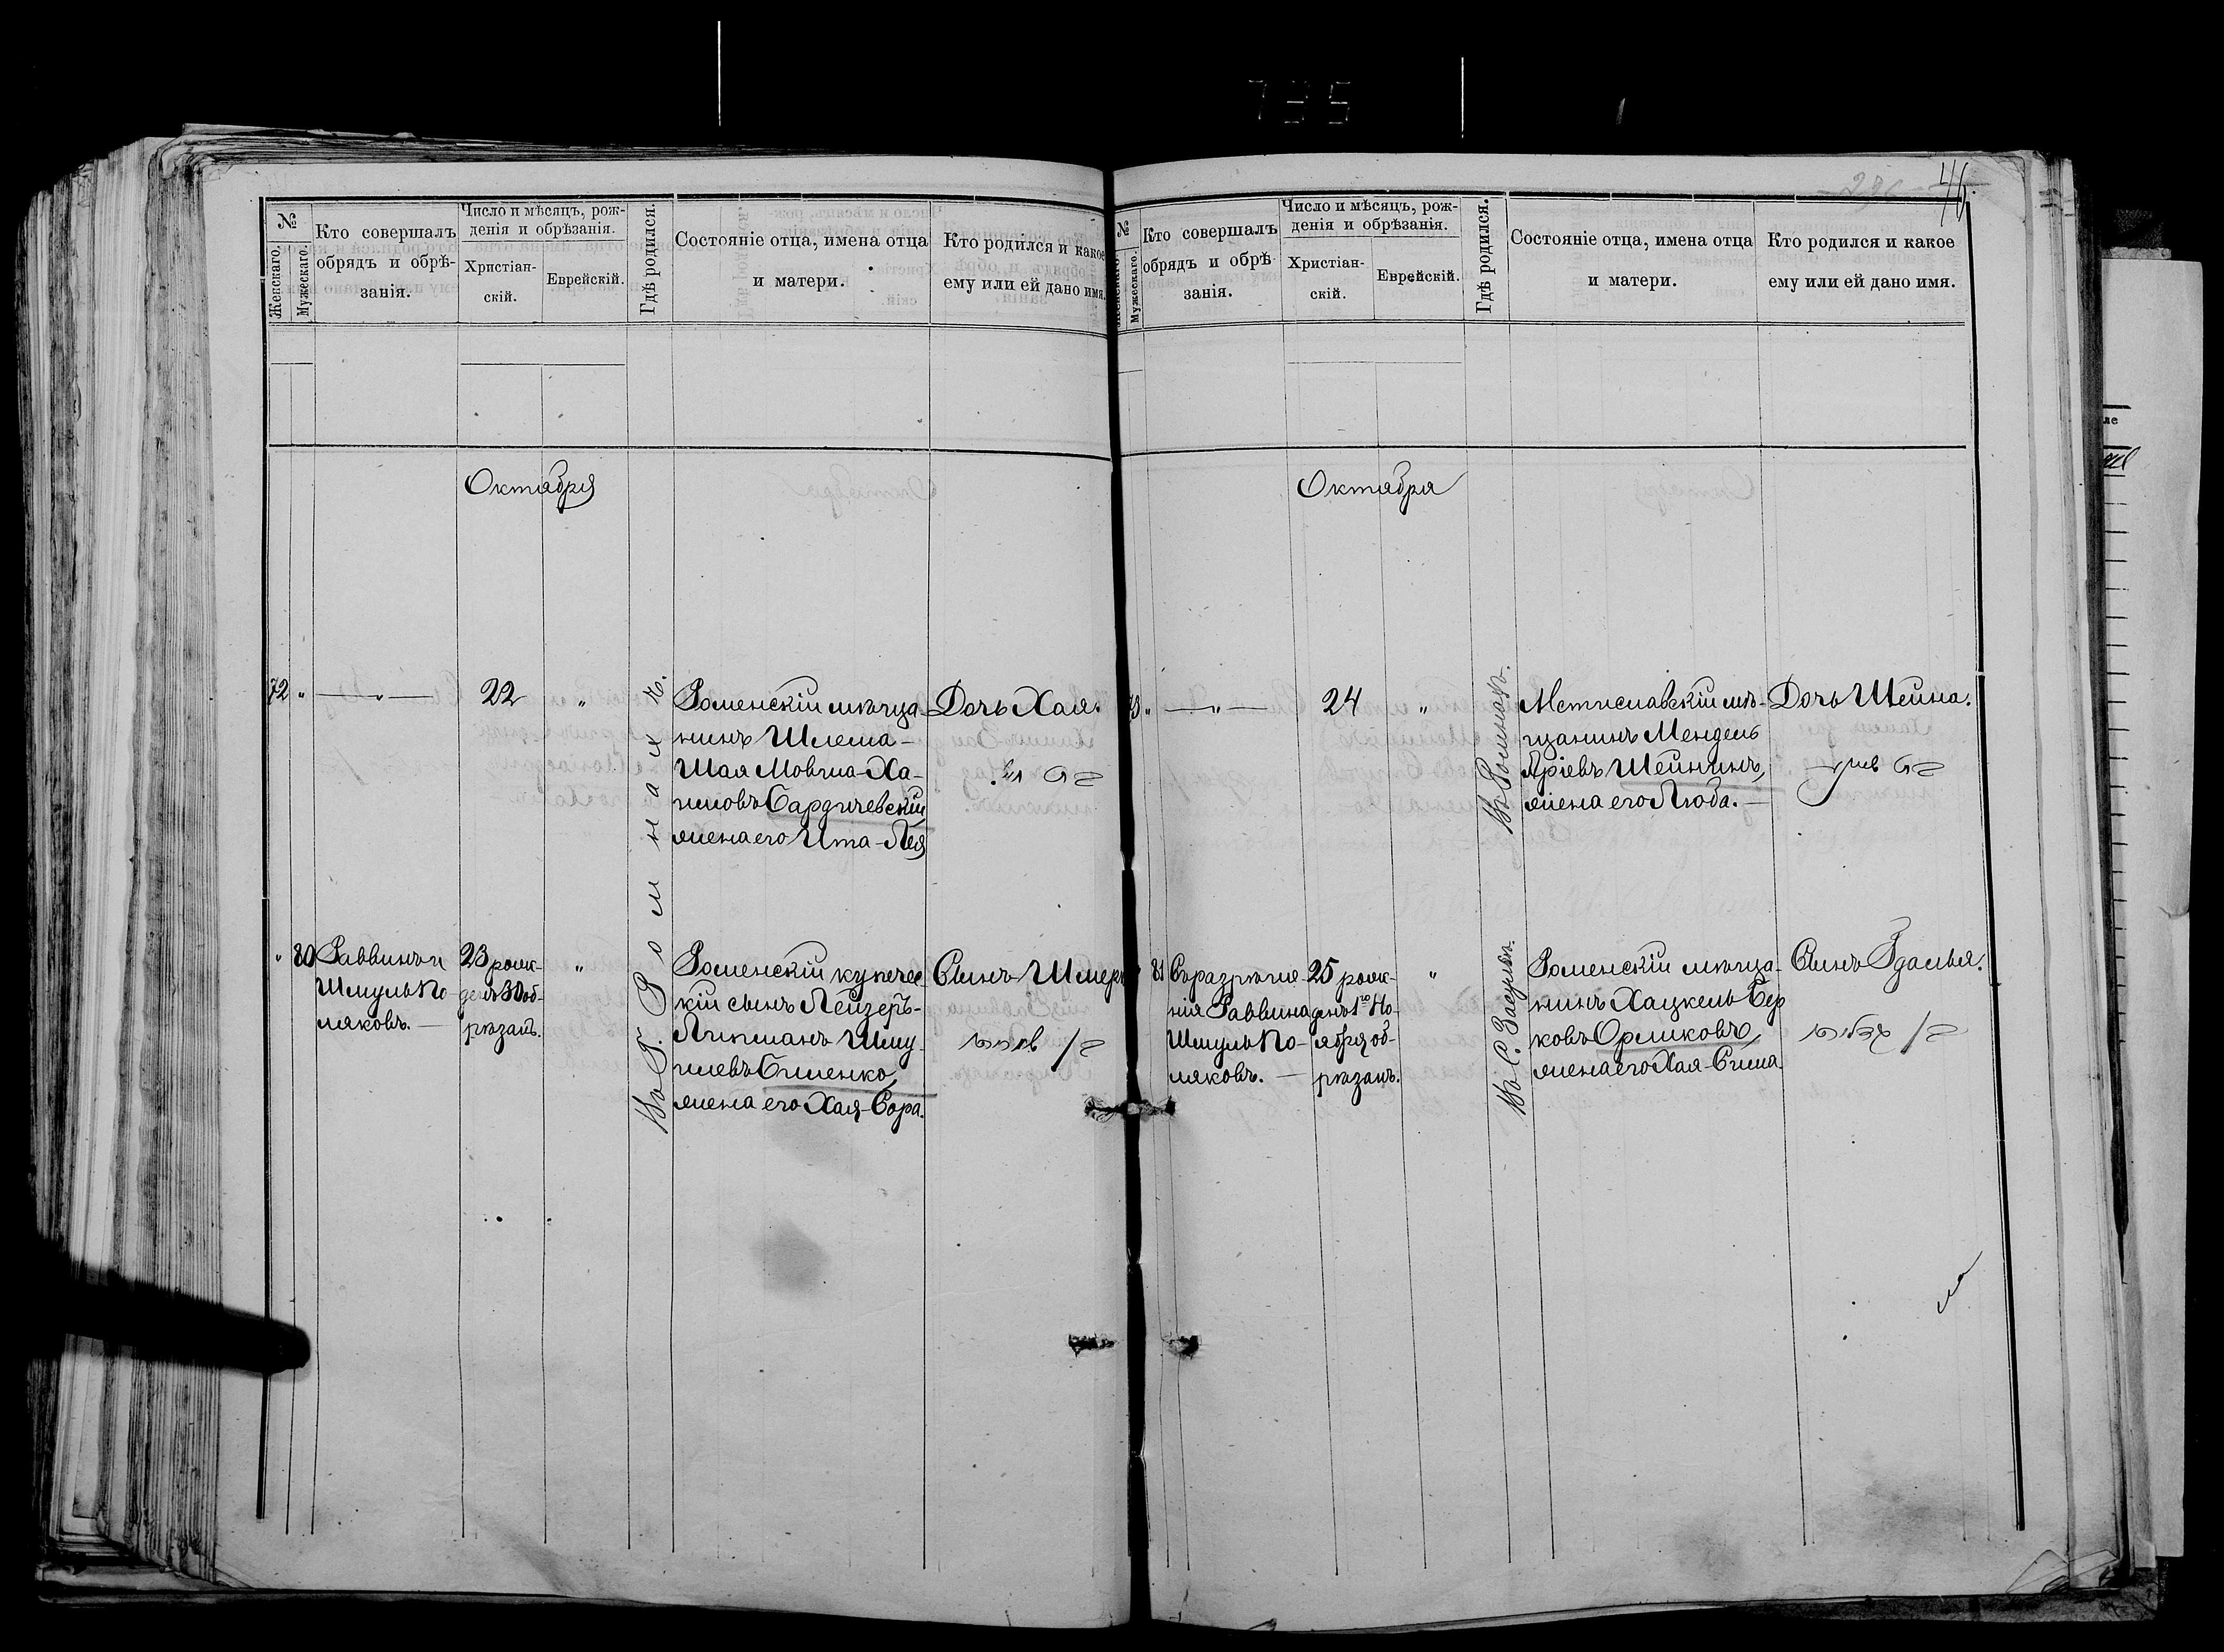 735
46
№
Женскаго.
Мужескаго.
Кто совершалъ
обрядъ и обрѣ-
занія.
Число и мѣсяцъ, рож-
денія и обрѣзанія.
Христіан-
скій.
Еврейскій.
Гдѣ родился.
Состояніе отца, имена отца
и матери.
Кто родился и какое
ему или ей дано имя.
Октября
72
"
— " —
22
"
Въ Г. Ромнахъ.
Роменскій мѣща-
нинъ Шлема-
Шая Мовша-Ха-
имовъ Бардичевскій,
жена его Ита-Лея
Дочь Хая.
בת חי'
"
80
Раввинъ и
Шмуль По-
ляковъ. —
23 рож-
денъ 30 об-
рѣзанъ.
"
Роменскій купечес-
кій сынъ Лейзеръ-
Липманъ Шму-
илевъ Слиенко,
жена его Хая-Сора.
Сынъ Шмер
בן
№
Женскаго.
Мужескаго.
Кто совершалъ
обрядъ и обрѣ-
занія.
Число и мѣсяцъ, рож-
денія и обрѣзанія.
Христіан-
скій.
Еврейскій.
Гдѣ родился.
Состояніе отца, имена отца
и матери.
Кто родился и какое
ему или ей дано имя.
Октября
73
"
— " —
24
"
Въ Ромнахъ.
Мстиславскій мѣ-
щанинъ Мендель
Аріевъ Шейнинъ,
жена его Люба. —
Дочь Шейна.
בת שיינע
81
Съ разрѣше-
нія Раввина
Шмуль По-
ляковъ. —
25 рож-
денъ 1го Но-
ября об-
рѣзанъ.
"
Въ С. Засульѣ.
Роменскій мѣща-
нинъ Хацкель Бер
ковъ Орликовъ,
жена его Хая-Сима.
Сынъ Гдалья.
בן